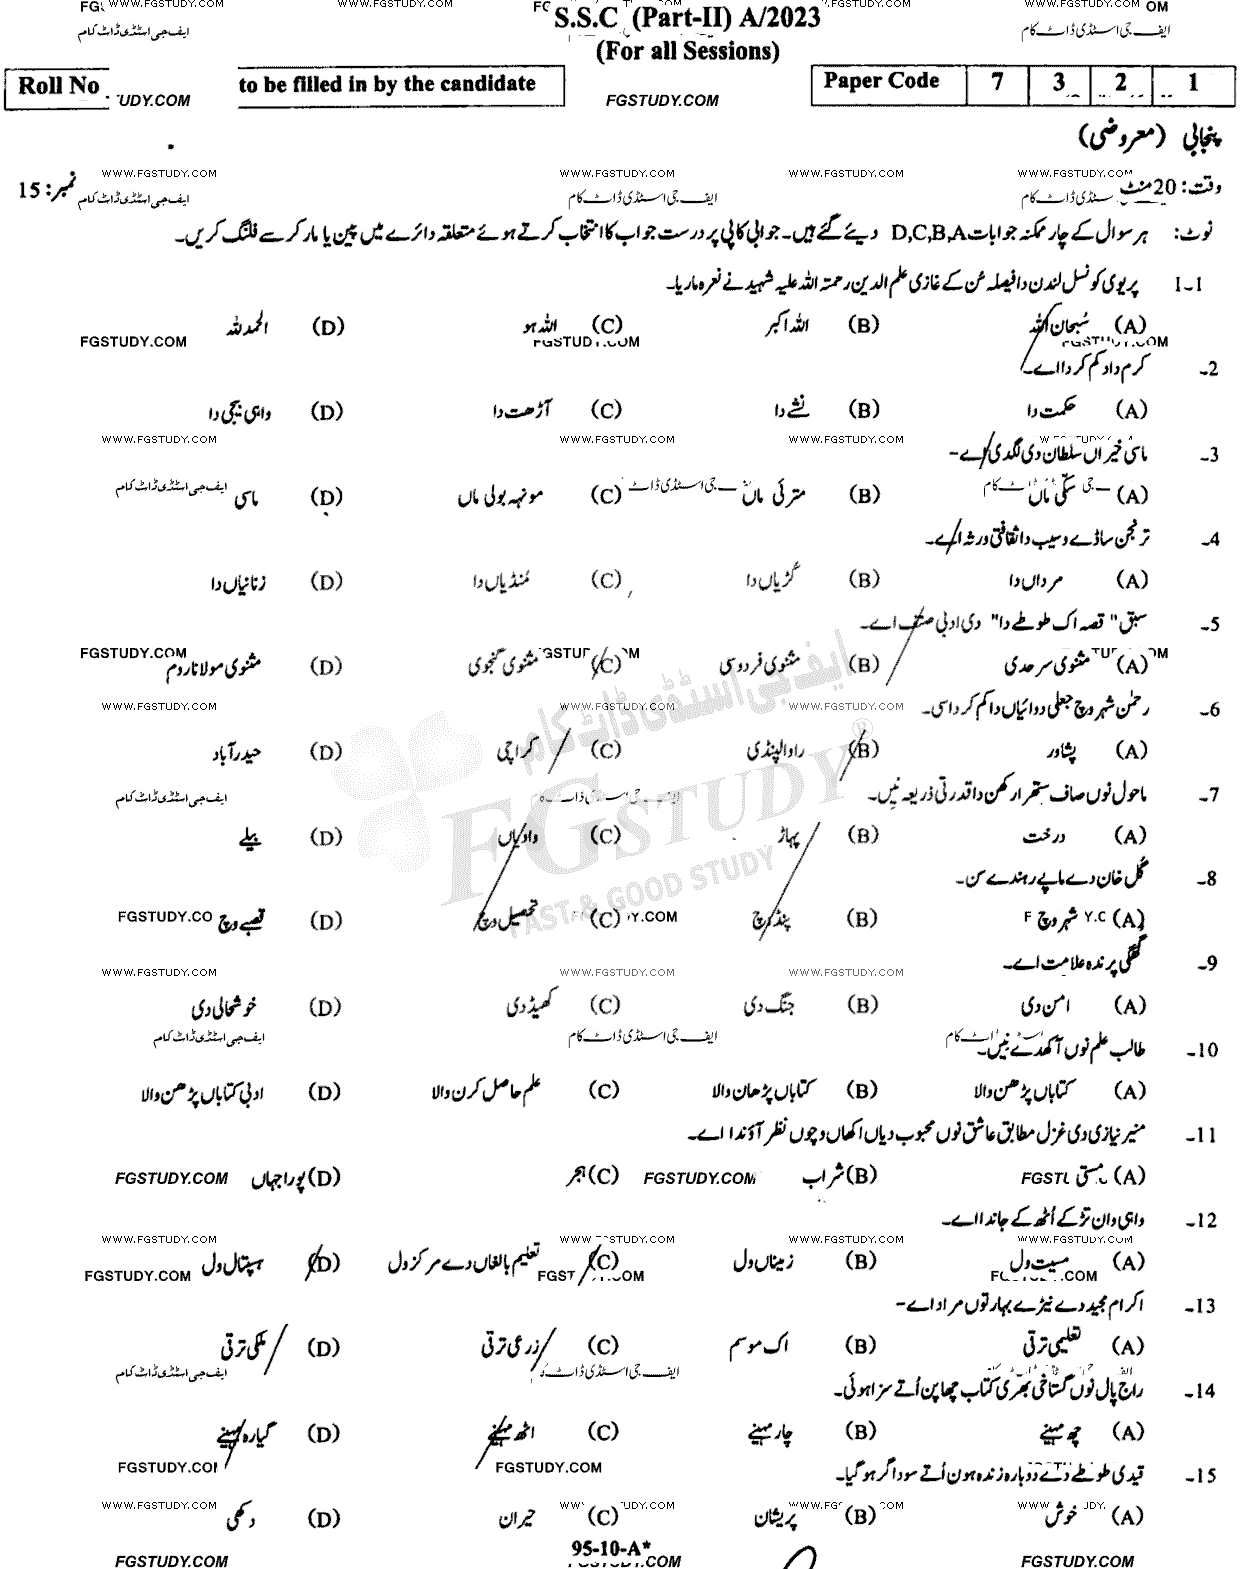 S.S.C (Part-II) A/2023
(For all Sessions)
Roll No to be filled in by the candidate
Paper Code 7 3 2 1
پنجابی (معروضی)
وقت: 20 منٹ نمبر: 15
نوٹ: ہر سوال کے چار ممکنہ جوابات D,C,B,A دیئے گئے ہیں۔ جوابی کاپی پر درست جواب کا انتخاب کرتے ہوئے متعلقہ دائرے میں پین یا مارکر سے فلنگ کریں۔
1-1 پریوی کونسل لندن دا فیصلہ سُن کے غازی علم الدین رحمتہ اللہ علیہ شہید نے نعرہ ماریا۔
(A) سُبحان اللہ (B) اللہ اکبر (C) اللہ ہو (D) الحمدللہ
2- کرم داد کم کردا اے۔
(A) حکمت دا (B) نشے دا (C) آڑھت دا (D) واہی بیجی دا
3- ماسی خیراں سلطان دی لگدی اے-
(A) سکی ماں (B) مترئی ماں (C) مونہہ بولی ماں (D) ماسی
4- ترنجن ساڈے وسیب دا ثقافتی ورثہ اے۔
(A) مرداں دا (B) کُڑیاں دا (C) مُنڈیاں دا (D) زنانیاں دا
5- سبق "قصہ اک طوطے دا" دی ادبی صنف اے۔
(A) مثنوی سرحدی (B) مثنوی فردوسی (C) مثنوی گنجوی (D) مثنوی مولانا روم
6- رحمٰن شہر وچ جعلی دوائیاں دا کم کردا سی۔
(A) پشاور (B) راولپنڈی (C) کراچی (D) حیدرآباد
7- ماحول نوں صاف ستھرا رکھن دا قدرتی ذریعہ نیں۔
(A) درخت (B) پہاڑ (C) وادیاں (D) بیلے
8- گُل خان دے ماپے رہندے سن۔
(A) شہر وچ (B) پنڈ وچ (C) تحصیل وچ (D) قصبے وچ
9- گھگی پرندہ علامت اے۔
(A) امن دی (B) جنگ دی (C) کھیڈ دی (D) خوشحالی دی
10- طالب علم نوں آکھدے نیں۔
(A) کتاباں پڑھن والا (B) کتاباں پڑھان والا (C) علم حاصل کرن والا (D) ادبی کتاباں پڑھن والا
11- منیر نیازی دی غزل مطابق عاشق نوں محبوب دیاں اکھاں وچوں نظر آؤندا اے۔
(A) مستی (B) شراب (C) ہجر (D) پورا جہاں
12- واہی وان تڑکے اُٹھ کے جاندا اے۔
(A) مسیت ول (B) زمیناں ول (C) تعلیم بالغاں دے مرکز ول (D) ہسپتال ول
13- اکرام مجید دے نیڑے بہار توں مراد اے-
(A) تعلیمی ترقی (B) اک موسم (C) زرعی ترقی (D) ملکی ترقی
14- راج پال نوں گستاخی بھری کتاب چھاپن اُتے سزا ہوئی۔
(A) چھ مہینے (B) چار مہینے (C) اٹھ مہینے (D) گیارہ مہینے
15- قیدی طوطے دے دوبارہ زندہ ہون اُتے سوداگر ہو گیا۔
(A) خوش (B) پریشان (C) حیران (D) دکھی
95-10-A*